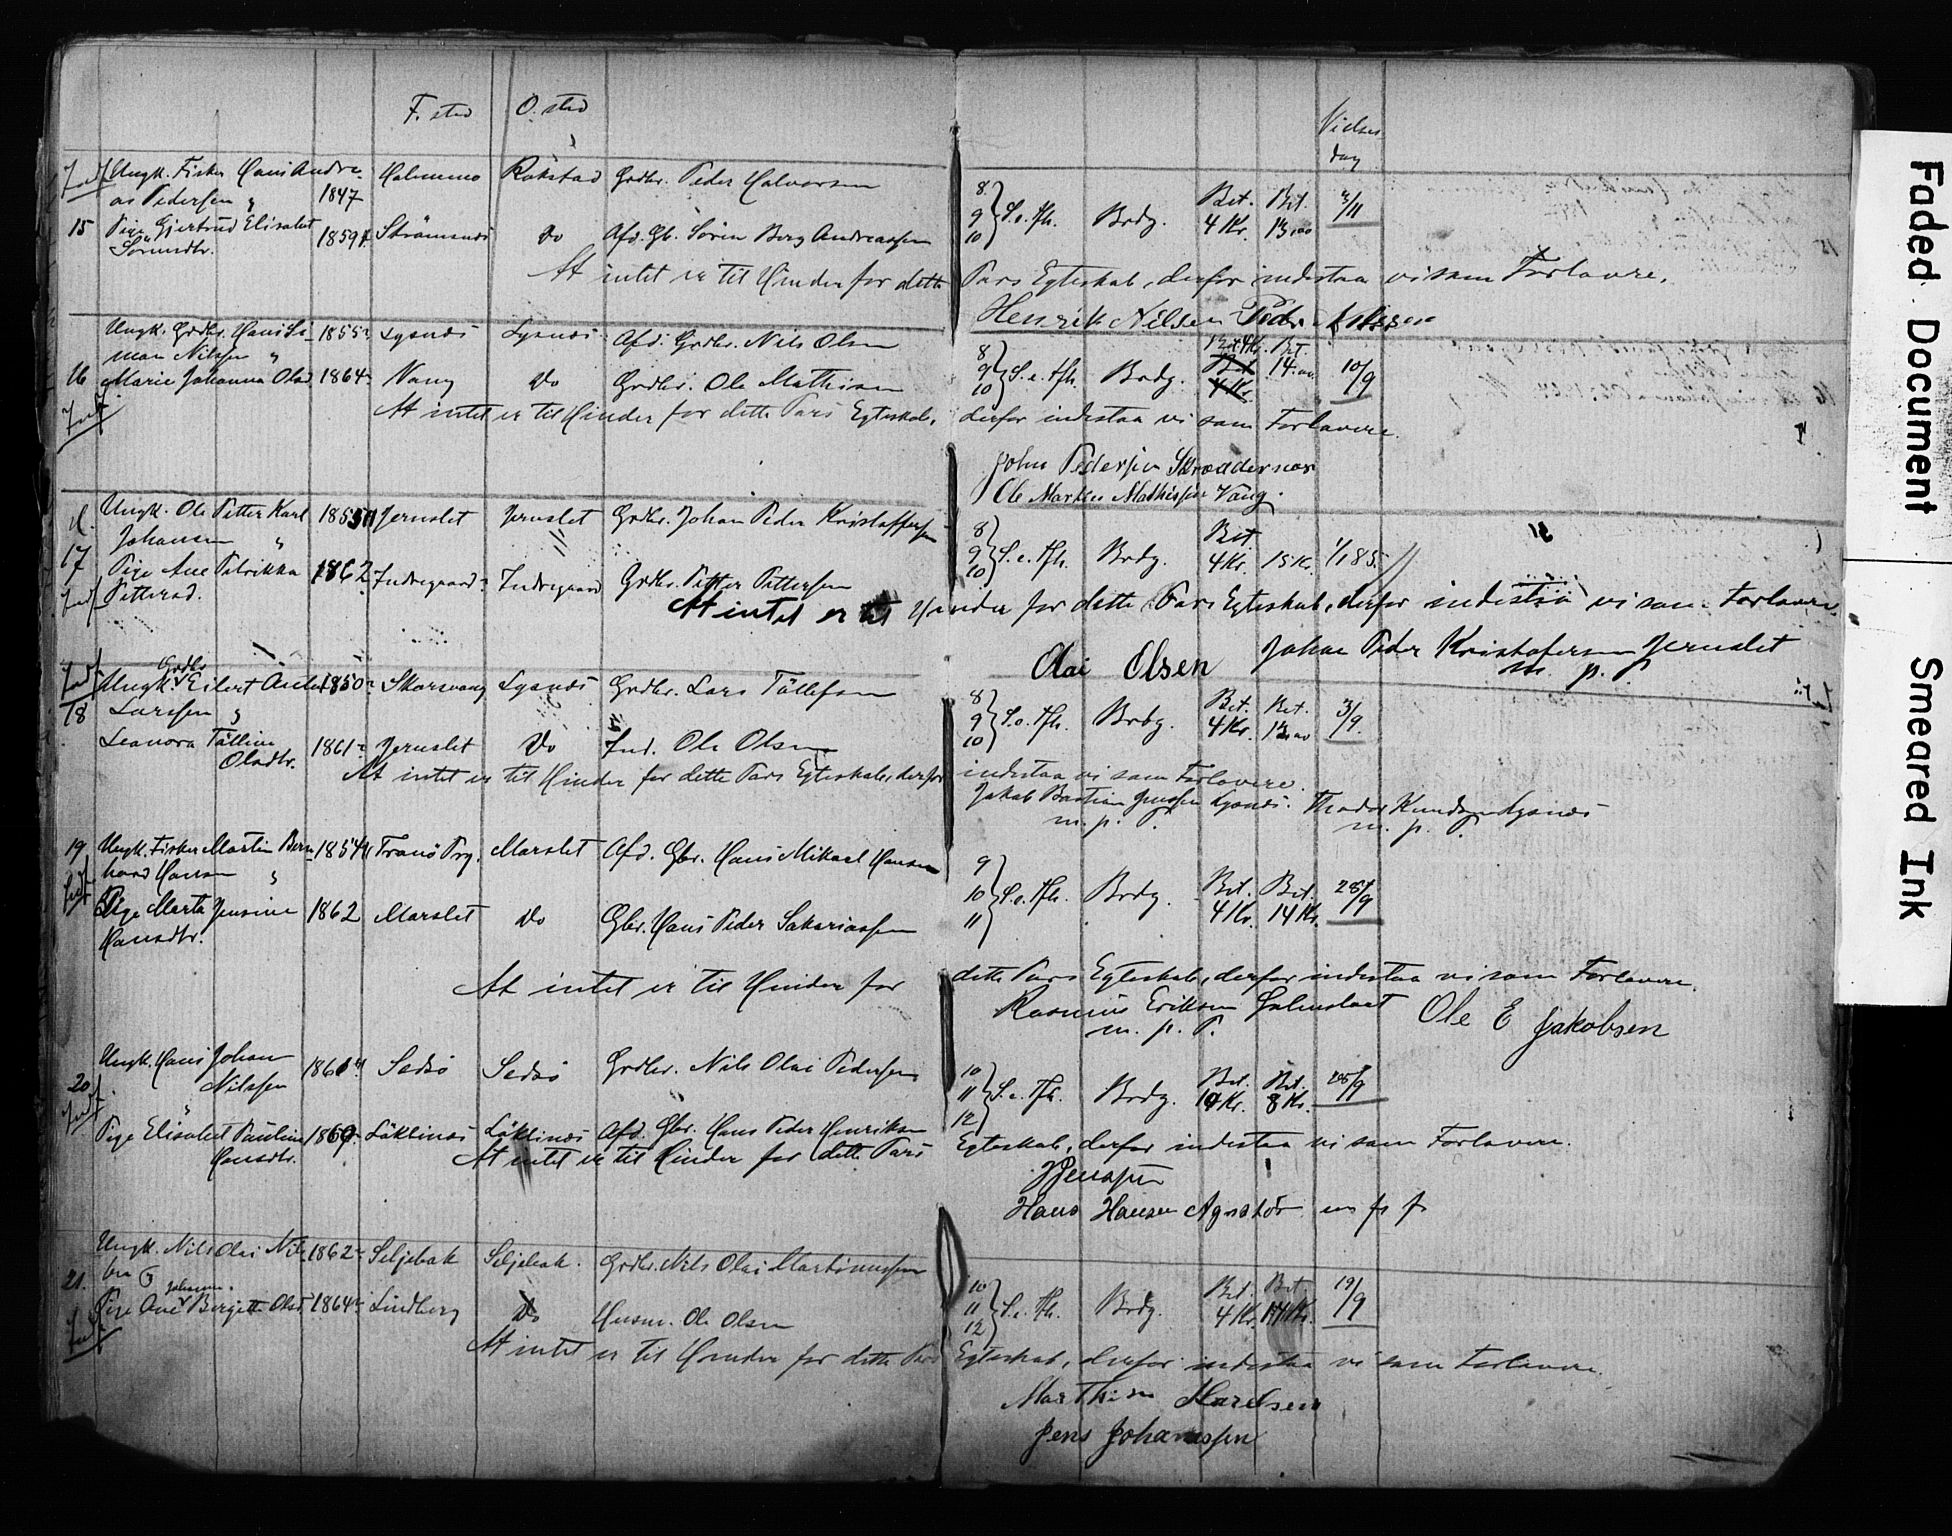 F. sted O. sted
Vielses
dag
Indf. Ungk. Fisker Hans Andre- Holmmo Rokstad Grdbr. Peder Halvorsen
as Pedersen 1847
8 9 10 S. e. Tfh. Brdg. Bet. 4 Kr. Bet. 2/11
15 Pige Gjertrud Elisabet 1859 Strömsnes Do Afd. Gb. Sören Berg Andreassen
Sörensdtr.
At intet er til Hinder for dette Pars Egteskab, derfor indestaa vi som Forlovere.
Henrik Nilsen Peder Nilssen
Ungk. Grdbr. Hans Si- 1855 Lysnes Lysnes Afd. Grdbr. Nils Olsen
mon Nilssen
8 9 10 S. e. Tfh. Brdg. Bet. 4 Kr. Bet. 14 10/9
16 Marie Johanna Olsd. 1864 Vang Do Grdbr. Ole Mathisen
Indf.
At intet er til Hinder for dette Pars Egteskab, derfor indestaa vi som Forlovere.
John Pedersen Skreddernes
Ole Martin Mathissen Vang.
Ungk. Ole Petter Karl 1855 Jernslet Jernslet Grdbr. Johan Peder Kristoffersen
Johansen
8 9 10 S. e. Tfh. Brdg. Bet. 4 Kr. 15 Kr. 1/1 85.
17 Pige Ane Petrikka 1862 Indregaard Indregaard Grdbr. Petter Pettersen
Indf. Pettersd.
At intet er til Hinder for dette Pars Egteskab, derfor indestaa vi som Forlovere.
Olai Olsen Johan Peder Kristofersen Jernslet
m. p. P.
Indf. Grdbr.
Ungk. Eilert Andr. 1850 Skarsvaag Lysnes Grdbr. Lars Töllefsen
18 Larssen
8 9 10 S. e. Tfh. Brdg. Bet. 4 Kr. Bet. 3/9
Leanora Tälline 1861 Jernslet Do Ind. Ole Olsen
Olsdtr.
At intet er til Hinder for dette Pars Egteskab, derfor indestaa vi som Forlovere.
Jakob Bastian Jenssen Lysnes. Theodor Knudsen Lysnes
m. p. P. m. p. P.
19 Ungk. Fisker Martin Bern- 1854 Tranö Prg. Marslet Afd. Gbr. Hans Mikael Hansen
Indf. hard Hansen
9 10 11 S. e. Tfh. Brdg. Bet. 4 Kr. Bet. 14 Kr. 28/9
Pige Marta Jensine 1862 Marslet Do Gbr. Hans Peder Sakariassen
Hansdtr.
At intet er til Hinder for dette Pars Egteskab, derfor indestaa vi som Forlovere.
Rasmus Eriksen Ole E Jakobsen
m. p. P.
Ungk. Hans Johan 1861 Sedsö Sedsö Grdbr. Nils Olai Pedersen
20 Nilssen
Indf.
10 11 12 S. e. Tfh. Brdg. Bet. Kr. Bet. 8 Kr. 28/9
Pige Elisabet Pauline Läklines Läklines Afd. Gbr. Hans Peder Henriksen
Hansdtr.
At intet er til Hinder for dette Pars Egteskab, derfor indestaa vi som Forlovere.
Hans Hansen m p p
Ungk. Nils Olai Nils- 1862 Seljebak Seljebak. Grdbr. Nils Olai Martinussen
21. sen
10 11 12 S. e. Tfh. Brdg. Bet. 4 Kr. Bet. 19/9
Johanna
Pige Ane Bergitte Olsd. 1864 Lindberg Do Husm. Ole Olsen
Indf.
At intet er til Hinder for dette Pars Egteskab, derfor indestaa vi som Forlovere.
Marthin Karelsen
Jens Johanssen
Faded Document
Smeared Ink